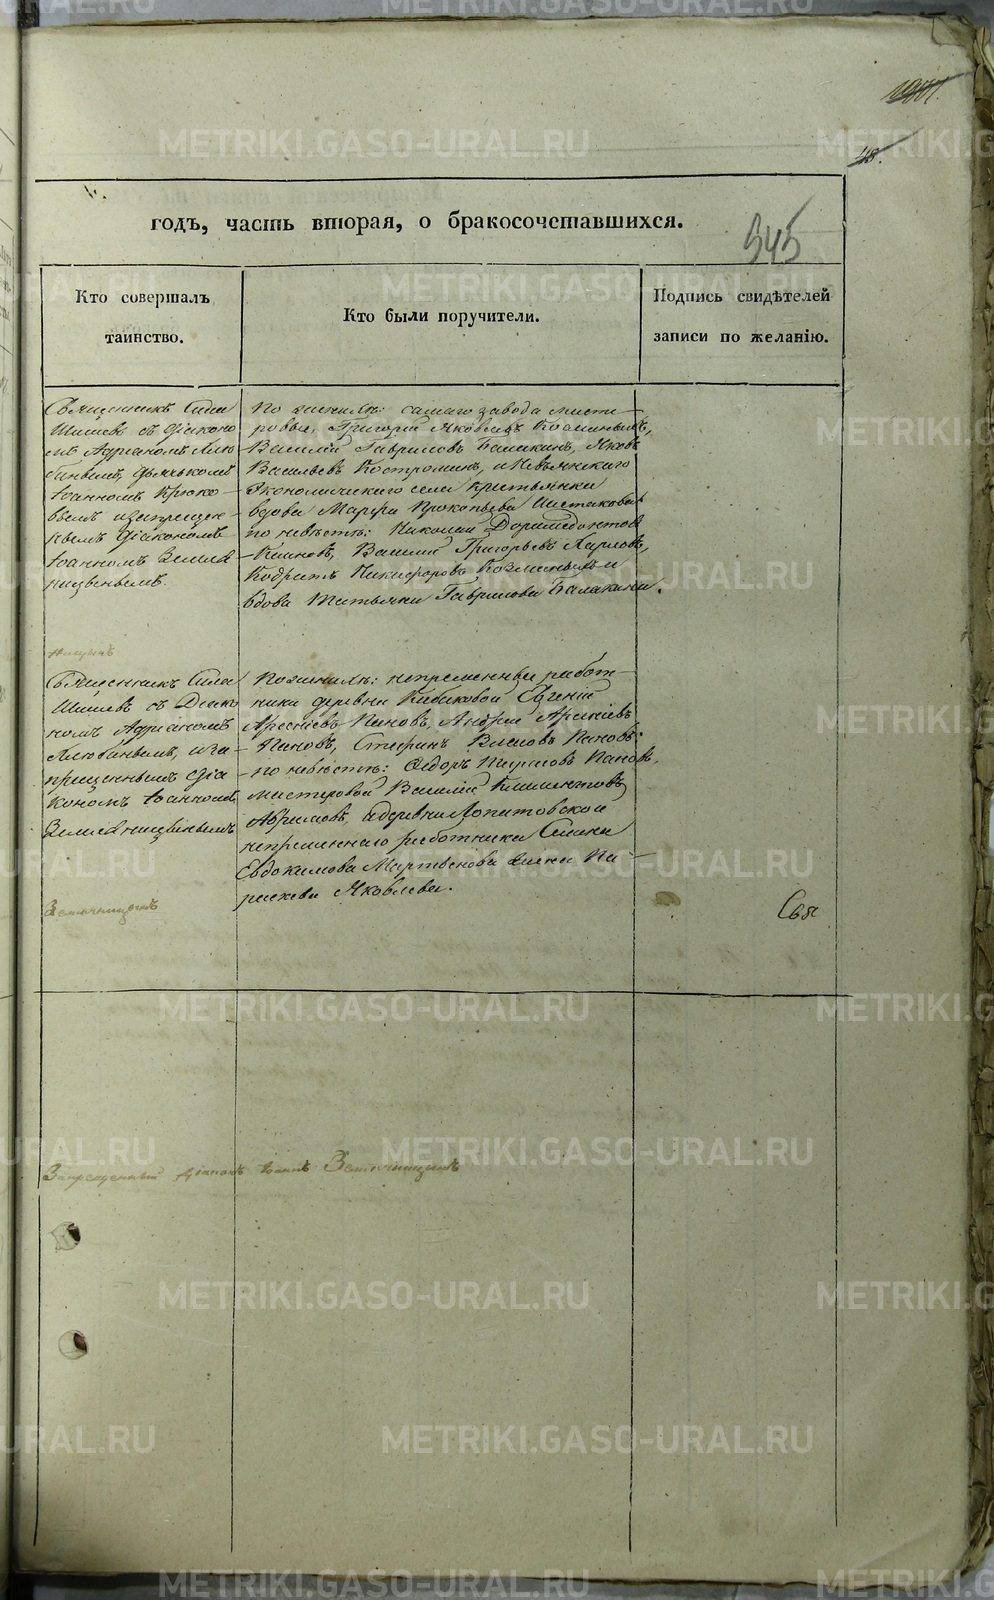 48.
годъ, часть вторая, о бракосочетавшихся.
545
Кто совершалъ
таинство.
Кто были поручители.
Подпись свидѣтелей
записи по желанію.
Священникъ Сила
Шишевъ съ діаконо
мъ Адріаномъ Лю
бинымъ, дьячькомъ
Іоанномъ Крюко-
вымъ изапрещен-
нымъ діакономъ
Іоанномъ Земля
ницынымъ.
По женихѣ: самаго завода масте-
ровые, Григорій Яковлевъ Козминыхъ,
Василій Гавриловъ Балакинъ, Яковъ
Васильевъ Костроминъ, и Невьянскаго
Экономическаго села крестьянка
вдова Марфа Прокопьева Шестакова;
по невѣстѣ: Николай Доримедонтовъ
Василій Григорьевъ Карповъ,
Кодратъ Никифоровъ Козминыхъ и
вдова Татьяна Гаврилова Балакина.
Священникъ Сила
Шишевъ съ Діако
номъ Адріаномъ
Любинымъ, иза
прещеннымъ діа
кономъ Іоанномъ
Земляницынымъ
По женихѣ: непременные работ-
ники деревни Кибаковой Евгеній
Арсеніевъ Пановъ, Андрей Арсеніевъ
Пановъ, Стефанъ Власовъ Пановъ;
по невѣстѣ: Ѳедоръ Пановъ,
мастеровой Василій Климентовъ
Абрамовъ, идеревни Лопатовской
непременнаго работника Семена
Евдокимова Мартьянова жена Па-
раскева Яковлева.
Земляницынъ
Свя
Запрещенный діаконъ Іоаннъ Земляницынъ
METRIKI.GASO-URAL.RU